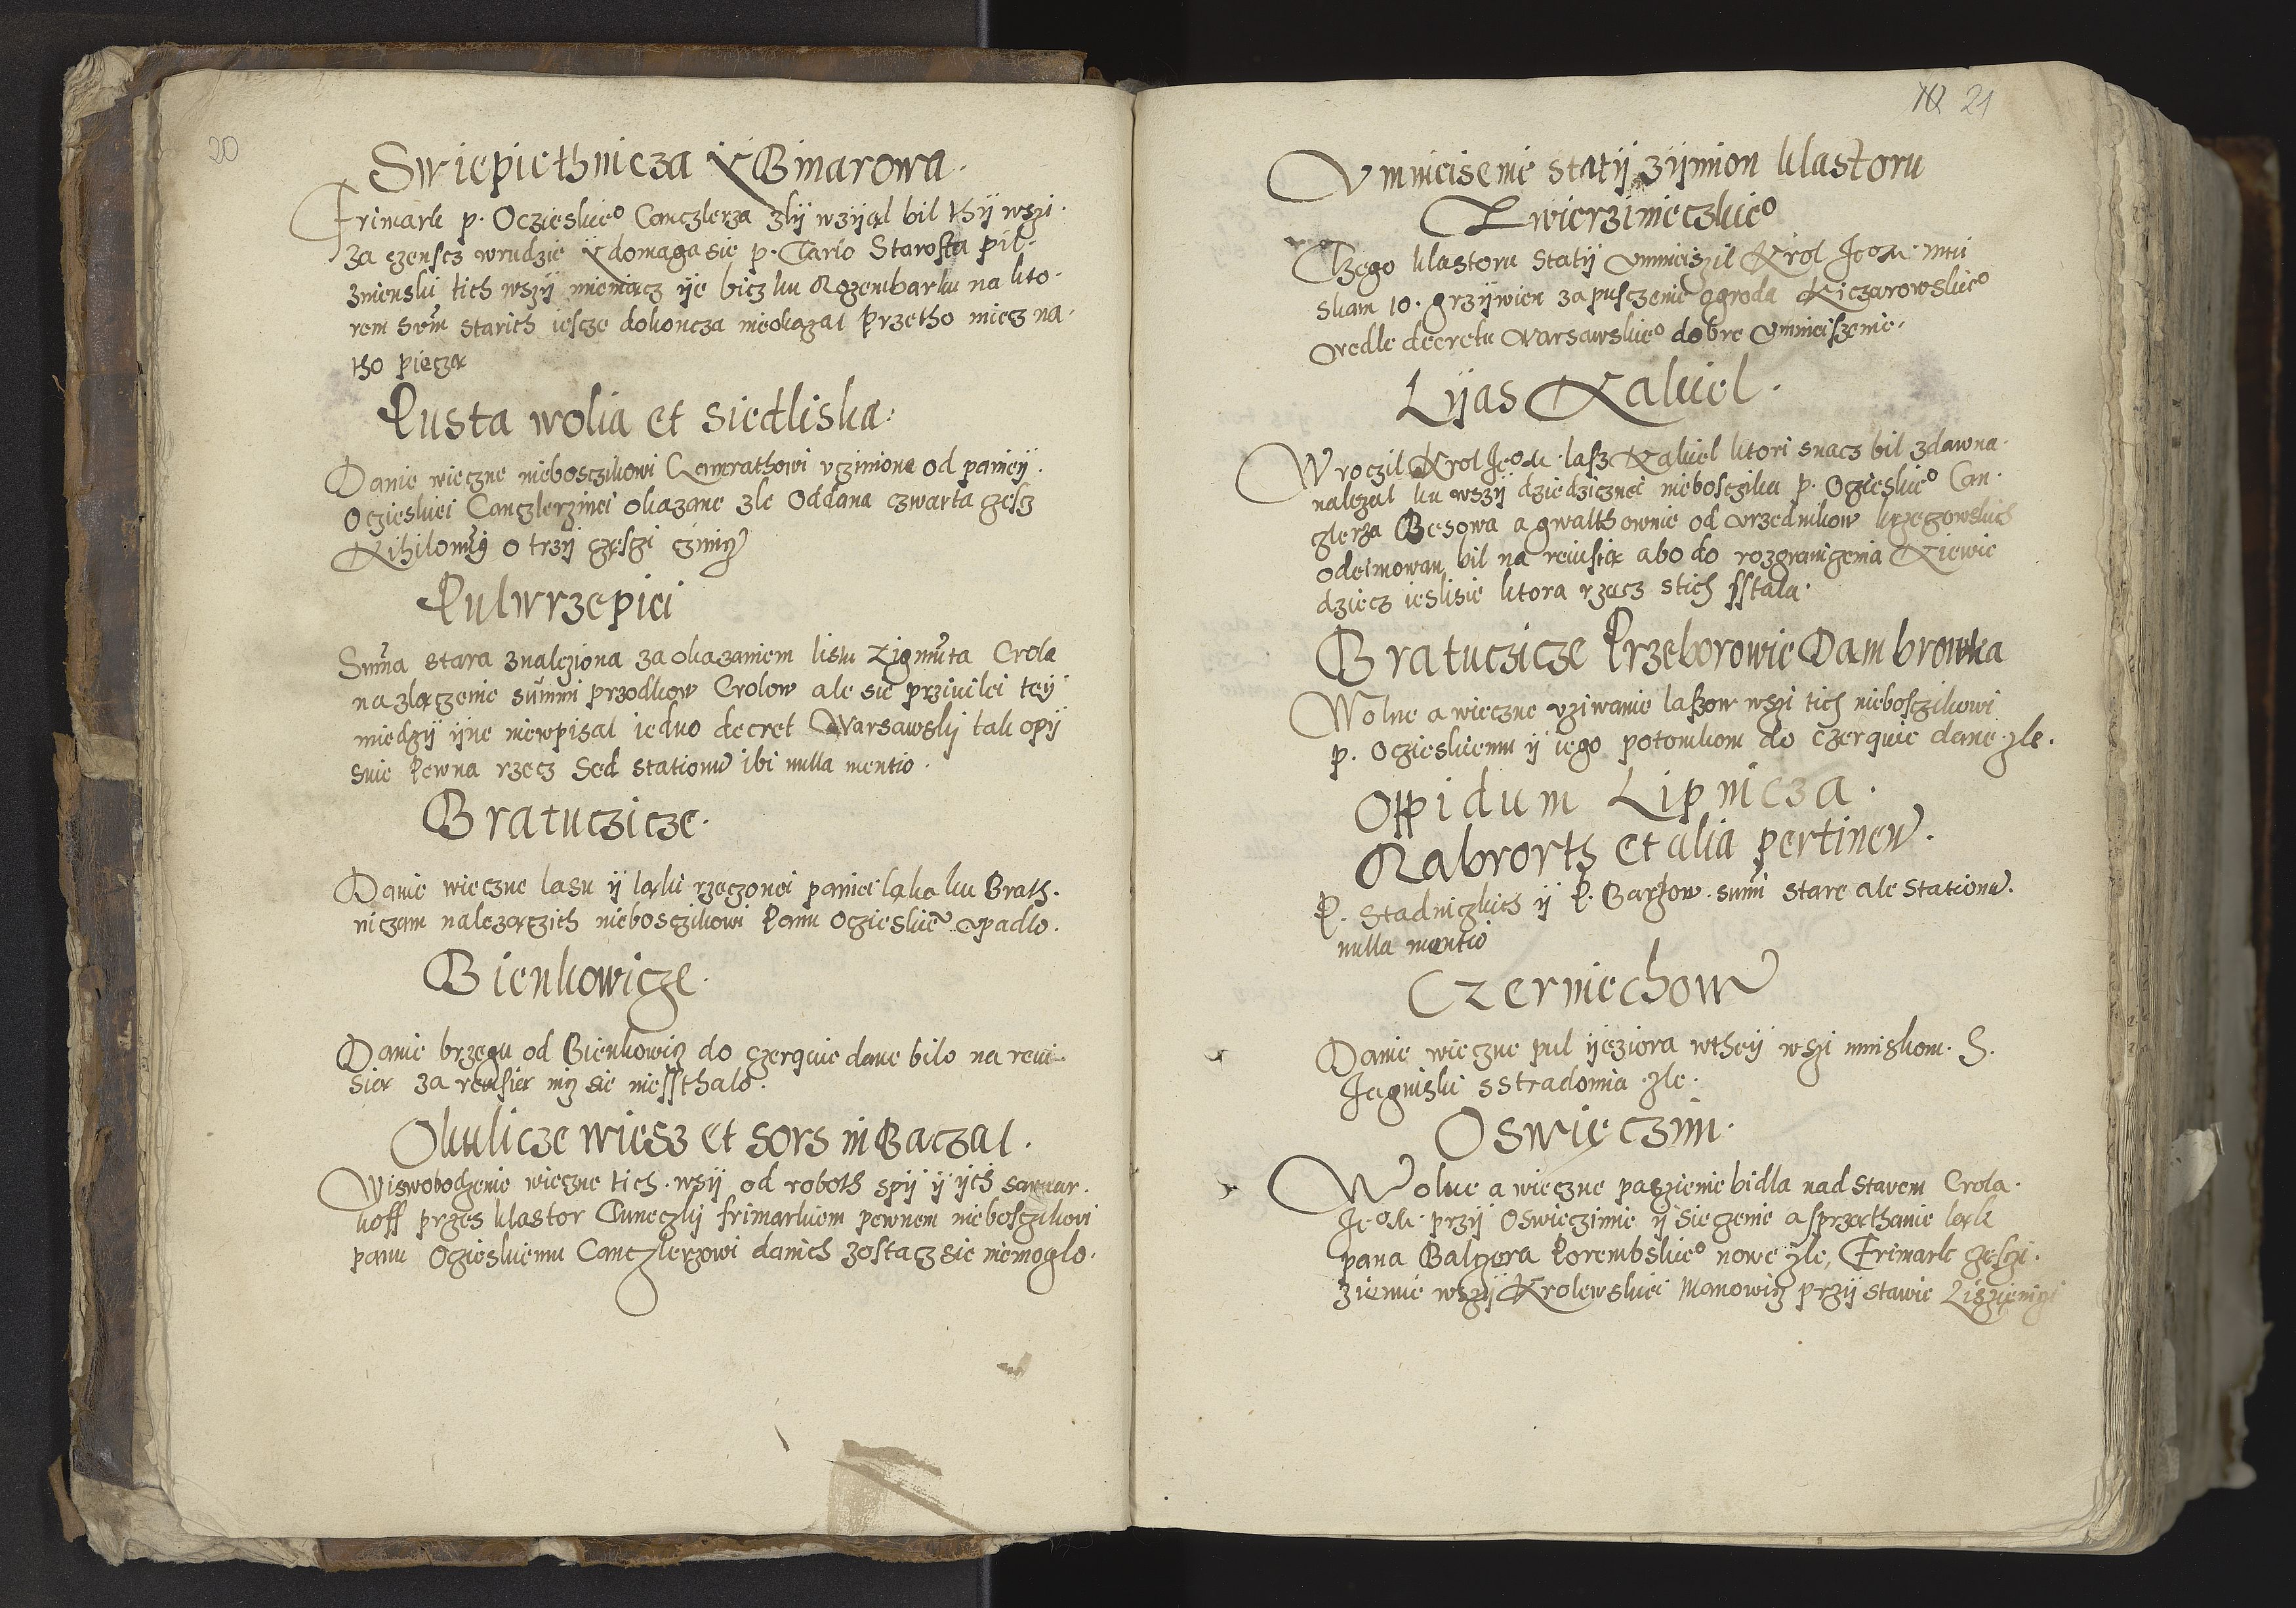 20
Swiepiethnicza Y Binarowa.
Frimark p. Oczieskieo Canczlerza zlÿ wzÿął bil thÿ wszi.
za czenscz wrudzie Y domaga sie p. Tarło Starosta pil-
znienski tich wszÿ mieniącz ÿe bicz ku Rozembarku na kto-
rem Sum̃ starich iescze dokoncza nieokazał Przetho miecz na-
tho piecza
Pusta wolia et Siedliska.
Danie wieczne nieboszczikowi Comrathowi vczinione od paniej.
Oczieskiei Canczlerzinei okazane zle Oddana czwarta czescz
Nihilomĩ9 o trzÿ częsczi
Pulwrzepici
Sum̃a stara znaleziona za okazaniem listu Zigmũta Crola
na złączenie summi przodkow Crolow ale sie przivilei teÿ
miedzÿ ÿne niewpisał iedno decret Warsawskÿ tak opÿ
suie Pewna rzecz Sed stationũ ibi nulla mentio.
Bratuczicze.
Danie wieczne lasu ÿ łąki rzeczonei paniei łąka ku Brath.
niczam nalezączich nieboszczikowi Panu Oczieskiẽ vpadlo.
Bienkowicze.
Danie brzegu od Bienkowicz do czerquie dane bilo na revi-
sia za revisia nicz sie niessthalo.
Okulicze wiesz et sors in Baczal.
Wiswobodzenie wieczne tich. wsÿ od roboth spÿ ÿ ÿch
koff przes klastor Tuneczkÿ frimarkiem pewnem nieboszczikovi
panu Oczieskiemu Canczlerzowi danich zostacz sie niemoglo.
10 21
Vmnieisenie statÿ zÿmion klastoru
Zwierzinieczkieo
Tzego klastoru Statÿ vmnieiszil Krol Jeo M. mni
skam 10. grzÿwien za pusczenie ogroda Kiczarowskieo
vedle decretu Warsawskieo dobre vmnieiszenie.
Lÿas Kakiel.
Wroczil Krol Jeo M. lasz Kakiel ktori snacz bil zdawna.
nalezal ku wszÿ dziedzicznei nieboszczika p. Oczieskieo Can-
czlerza Besowa a gwalthownie od vrzednikow krzeczowskich
odeimowan bil na reiusia abo do rozgraniczenia Niewie
dziecz ieslisie ktora rzecz stich sstala.
Bratuczicze Przeborowie Dambrowka
Wolne a wieczne vziwanie laszow wszi tich nieboszczikowi
p. Oczieskiemu ÿ iego potomkom do czerquie dane zle.
Oppidum Lipnicza.
Rabrorth et alia pertineñ.
P. Stadniczkich ÿ P. Barzow. sum̃i stare ale stationũ.
nulla mentio
Czerniechow
Danie wieczne pul ÿeziora wtheÿ wszi mniskom. S.
Jagniski sstradomia zle.
Oswięczim.
Wolne a wieczne paszienie bidla nad stavem Crola.
Jeo M. przÿ Oswieczimie ÿ sieczenie a sprzathanie łąk
pana Balzera Porembskieo nowe zle, Frimark czesczi.
ziemie wszÿ Krolewskiei Manowicz przÿ stawie